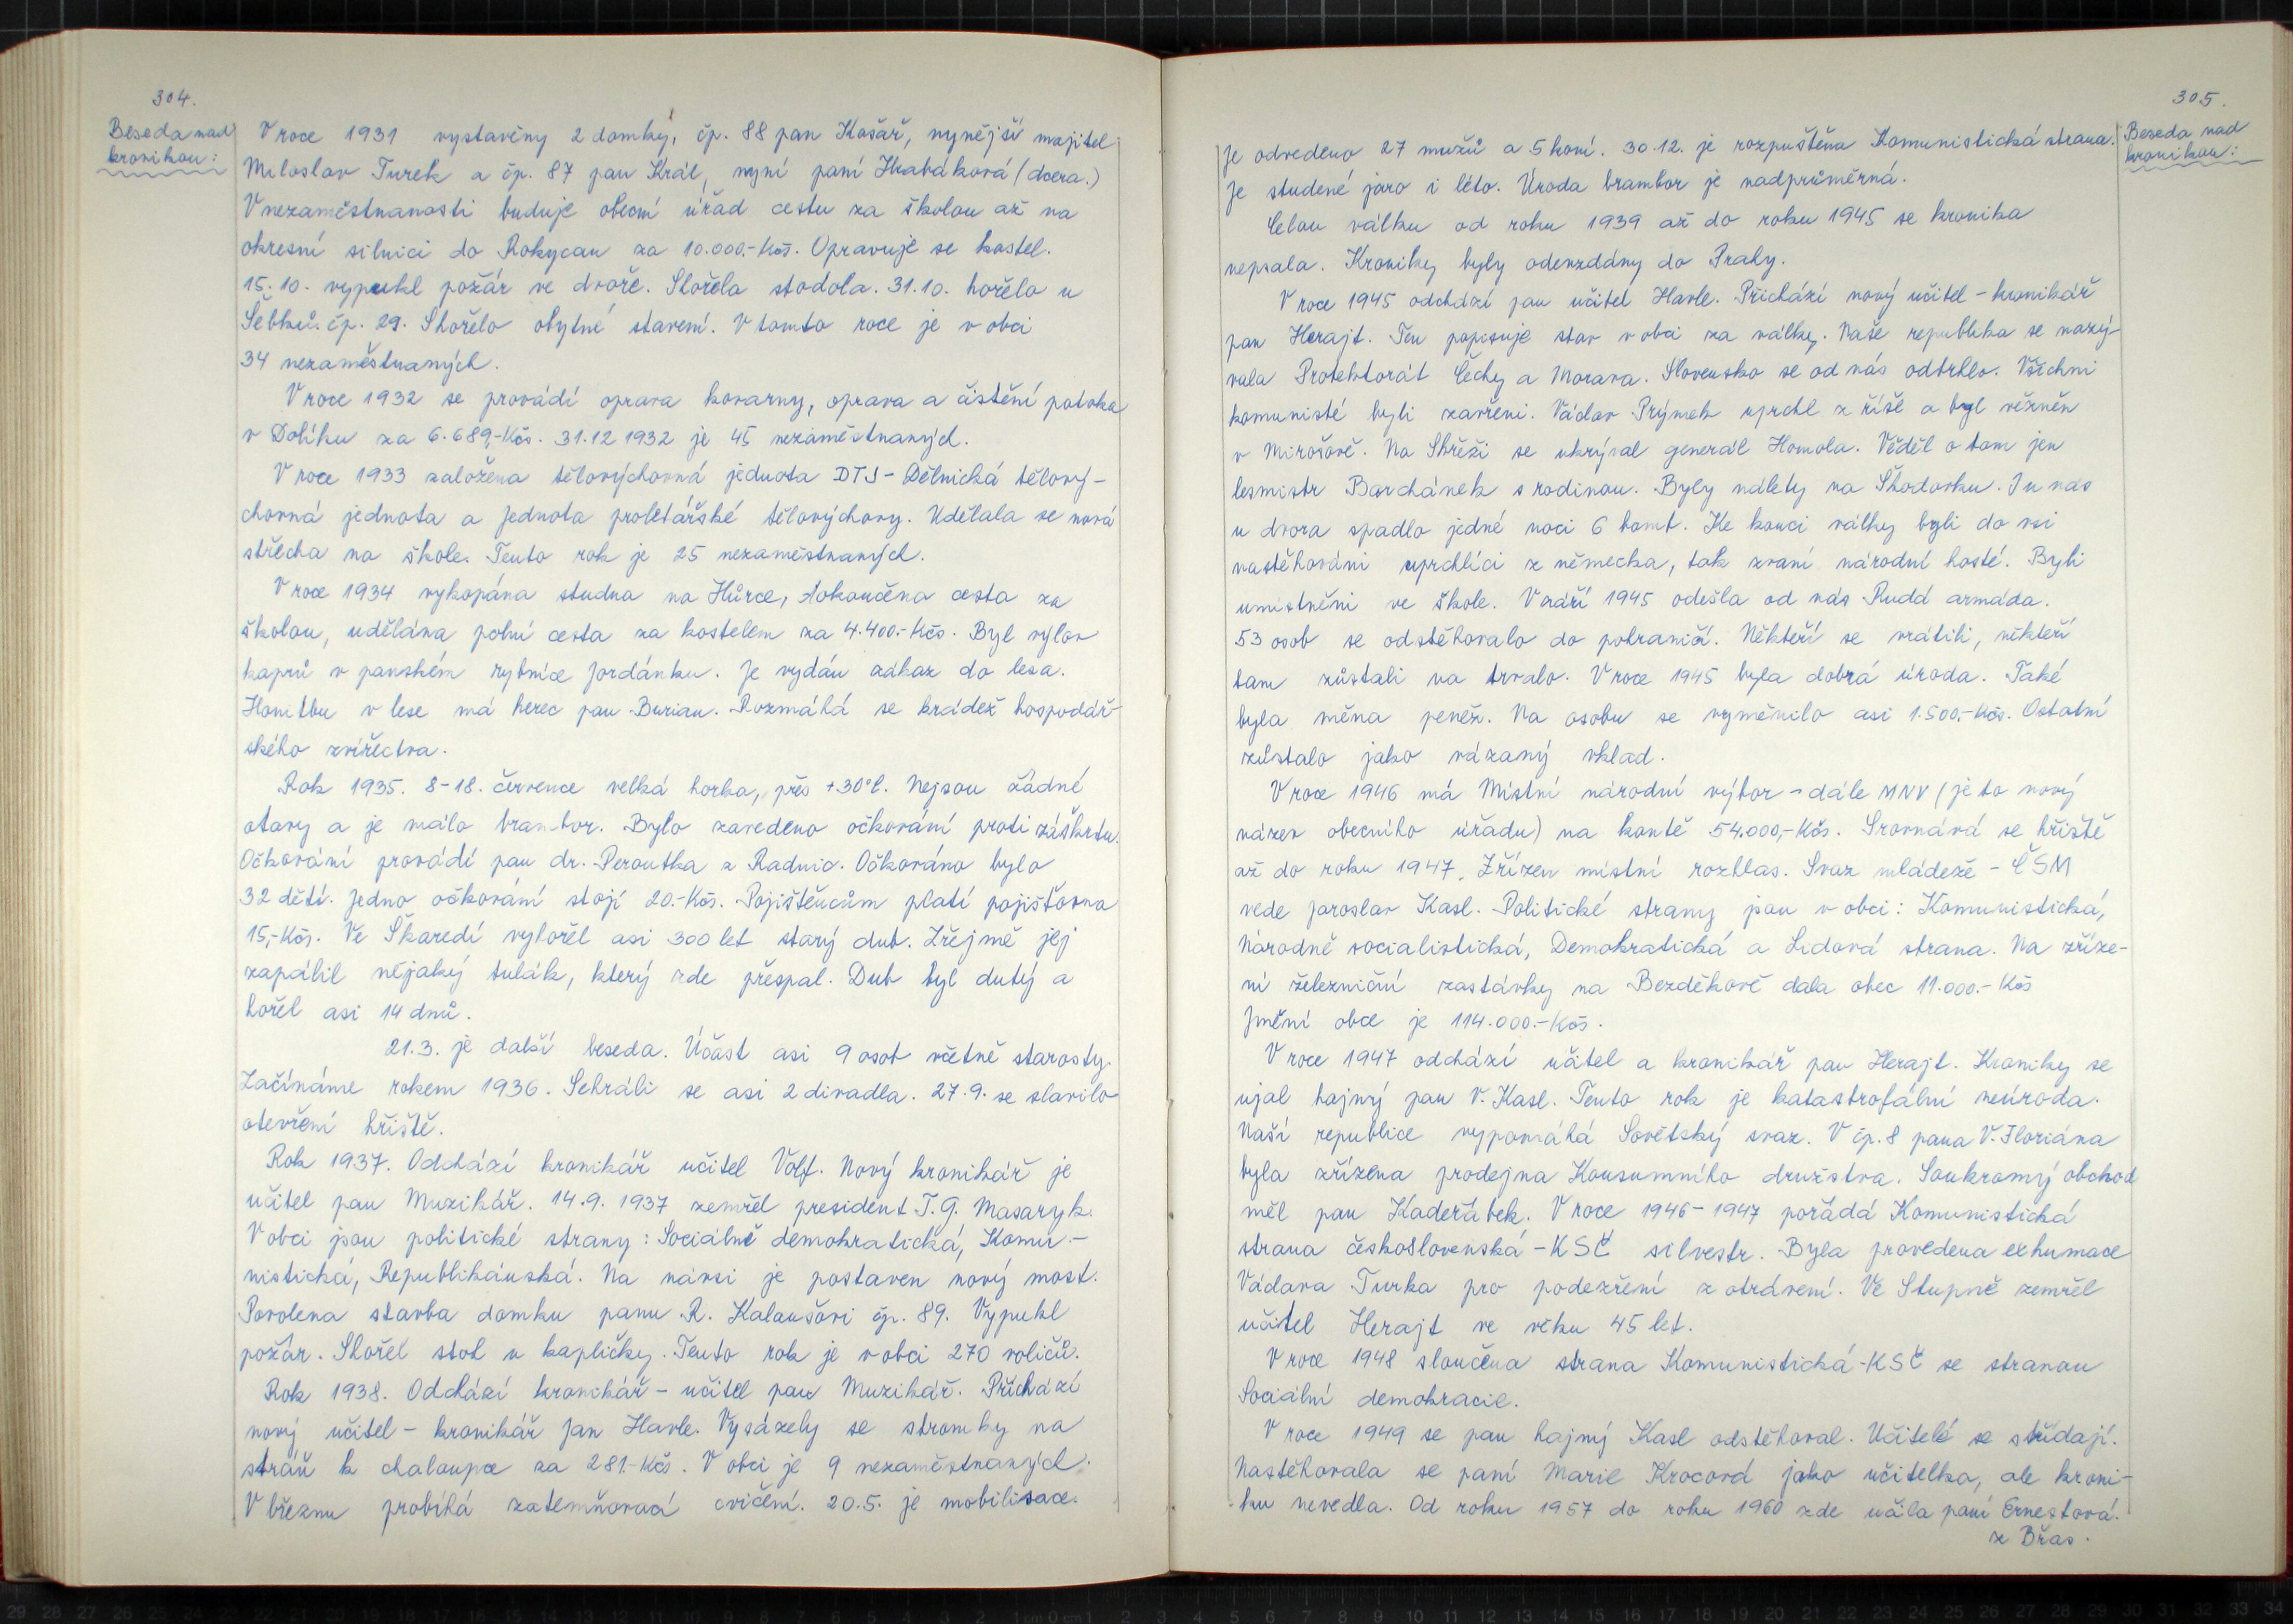 304.
Beseda nad
kronikou:
V roce 1931 vystavěny 2 domky, čp. 88 pan Košař, nynější majitel
Miloslav Turek a čp. 87 pan Král, nyní paní Hrabáková (dcera.)
V nezaměstnanosti buduje obecní úřad cestu za školou až na
okresní silnici do Rokycan za 10.000.-Kčs. Opravuje se kostel.
15.10. vypukl požár ve dvoře. Shořela stodola. 31.10. hořelo u
Šebků. čp. 29. Shořelo obytné stavení. V tomto roce je v obci
34 nezaměstnaných.
V roce 1932 se provádí oprava kovarny, oprava a čistění potoka
v Dolíku za 6.689,-Kčs. 31.12 1932 je 45 nezaměstnaných.
V roce 1933 založena tělovýchovná jednota DTJ - Dělnická tělový-
chovná jednota a Jednota proletářské tělovýchovy. Udělala se nová
střecha na škole. Tento rok je 25 nezaměstnaných.
V roce 1934 vykopána studna na Hůrce, dokončena cesta za
školou, udělána polní cesta za kostelem za 4.400.-Kčs. Byl výlov
kaprů v panském rybníce Jordánku. Je vydán zákaz do lesa.
Honitbu v lese má herec pan Burian. Rozmáhá se krádež hospodář-
ského zvířectva.
Rok 1935. 8-18. července velká horka, přes +30°C. Nejsou žádné
otavy a je málo brambor. Bylo zavedeno očkování proti záškrtu.
Očkování provádí pan dr. Peroutka z Radnic. Očkováno bylo
32 dětí. Jedno očkování stojí 20.-Kčs. Pojištěncům platí pojišťovna
15,-Kčs. Ve Škaredí vyhořel asi 300 let starý dub. Zřejmě jej
zapálil nějaký tulák, který zde přespal. Dub byl dutý a
hořel asi 14 dnů.
21.3. je další beseda. Účast asi 9 osob včetně starosty.
Začínáme rokem 1936. Sehráli se asi 2 divadla. 27.9. se slavilo
otevření hřiště.
Rok 1937. Odchází kronikář učitel Volf. Nový kronikář je
učitel pan Muzikář. 14.9. 1937 zemřel president T.G. Masaryk.
V obci jsou politické strany: Sociálně demokratická, Komu-
nistická, Republikánská. Na návsi je postaven nový most.
Povolena stavba domku panu R. Kalaušovi čp. 89. Vypukl
požár. Shořel stoh u kapličky. Tento rok je v obci 270 voličů.
Rok 1938. Odchází kronikář - učitel pan Muzikář. Přichází
nový učitel - kronikář Jan Havle. Vysázely se stromky na
stráň k chaloupce za 281.-Kčs. V obci je 9 nezaměstnaných.
V březnu probíhá zatemňovací cvičení. 20.5. je mobilisace.
305.
Beseda nad
kronikou:
Je odvedeno 27 mužů a 5 koní. 30.12. je rozpuštěna Komunistická strana.
Je studené jaro i léto. Úroda brambor je nadprůměrná.
Celou válku od roku 1939 až do roku 1945 se kronika
nepsala. Kroniky byly odevzdány do Prahy.
V roce 1945 odchází pan učitel Havle. Přichází nový učitel - kronikář
pan Herajt. Ten popisuje stav v obci za války. Naše republika se nazý-
vala Protektorát Čechy a Morava. Slovensko se od nás odtrhlo. Všichni
komunisté byli zavřeni. Václav Prýmek uprchl z říše a byl vězněn
v Mirošově. Na Střeži se ukrýval generál Homola. Věděl o tom jen
lesmistr Barchánek s rodinou. Byly nálety na Škodovku. I u nás
u dvora spadlo jedné noci 6 bomb. Ke konci války byli do vsi
nastěhováni uprchlíci z německa, tak zvaní národní hosté. Byli
umístněni ve škole. V září 1945 odešla od nás Rudá armáda.
53 osob se odstěhovalo do pohraničí. Někteří se vrátili, někteří
tam zůstali na trvalo. V roce 1945 byla dobrá úroda. Také
byla měna peněz. Na osobu se vyměnilo asi 1.500,-Kčs. Ostatní
zůstalo jako vázaný vklad.
V roce 1946 má Místní národní výbor - dále MNV (je to nový
název obecního úřadu) na kontě 54.000,-Kčs. Srovnává se hřiště
až do roku 1947. Zřízen místní rozhlas. Svaz mládeže - ČSM
vede Jaroslav Kasl. Politické strany jsou v obci: Komunistická,
Národně socialistická, Demokratická a Lidová strana. Na zříze-
ní železniční zastávky na Bezděkově dala obec 11.000.- Kčs
Jmění obce je 114.000.-Kčs.
V roce 1947 odchází učitel a kronikář pan Herajt. Kroniky se
ujal hajný pan V. Kasl. Tento rok je katastrofální neúroda.
Naší republice vypomáhá Sovětský svaz. V čp. 8 pana V. Floriána
byla zřízena prodejna Konsumního družstva. Soukromý obchod
měl pan Kadeřábek. V roce 1946-1947 pořádá Komunistická
strana československá - KSČ silvestr. Byla provedena exhumace
Václava Turka pro podezření z otrávení. Ve Stupně zemřel
učitel Herajt ve věku 45 let.
V roce 1948 sloučena strana Komunistická-KSČ se stranou
Sociální demokracie.
V roce 1949 se pan hajný Kasl odstěhoval. Učitelé se střídají.
Nastěhovala se paní Marie Krocová jako učitelka, ale kroni-
ku nevedla. Od roku 1957 do roku 1960 zde učila paní Ernestová.
z Břas.